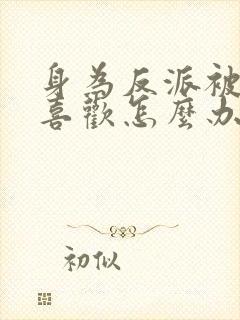 身為反派被
喜歡怎麼办
初似